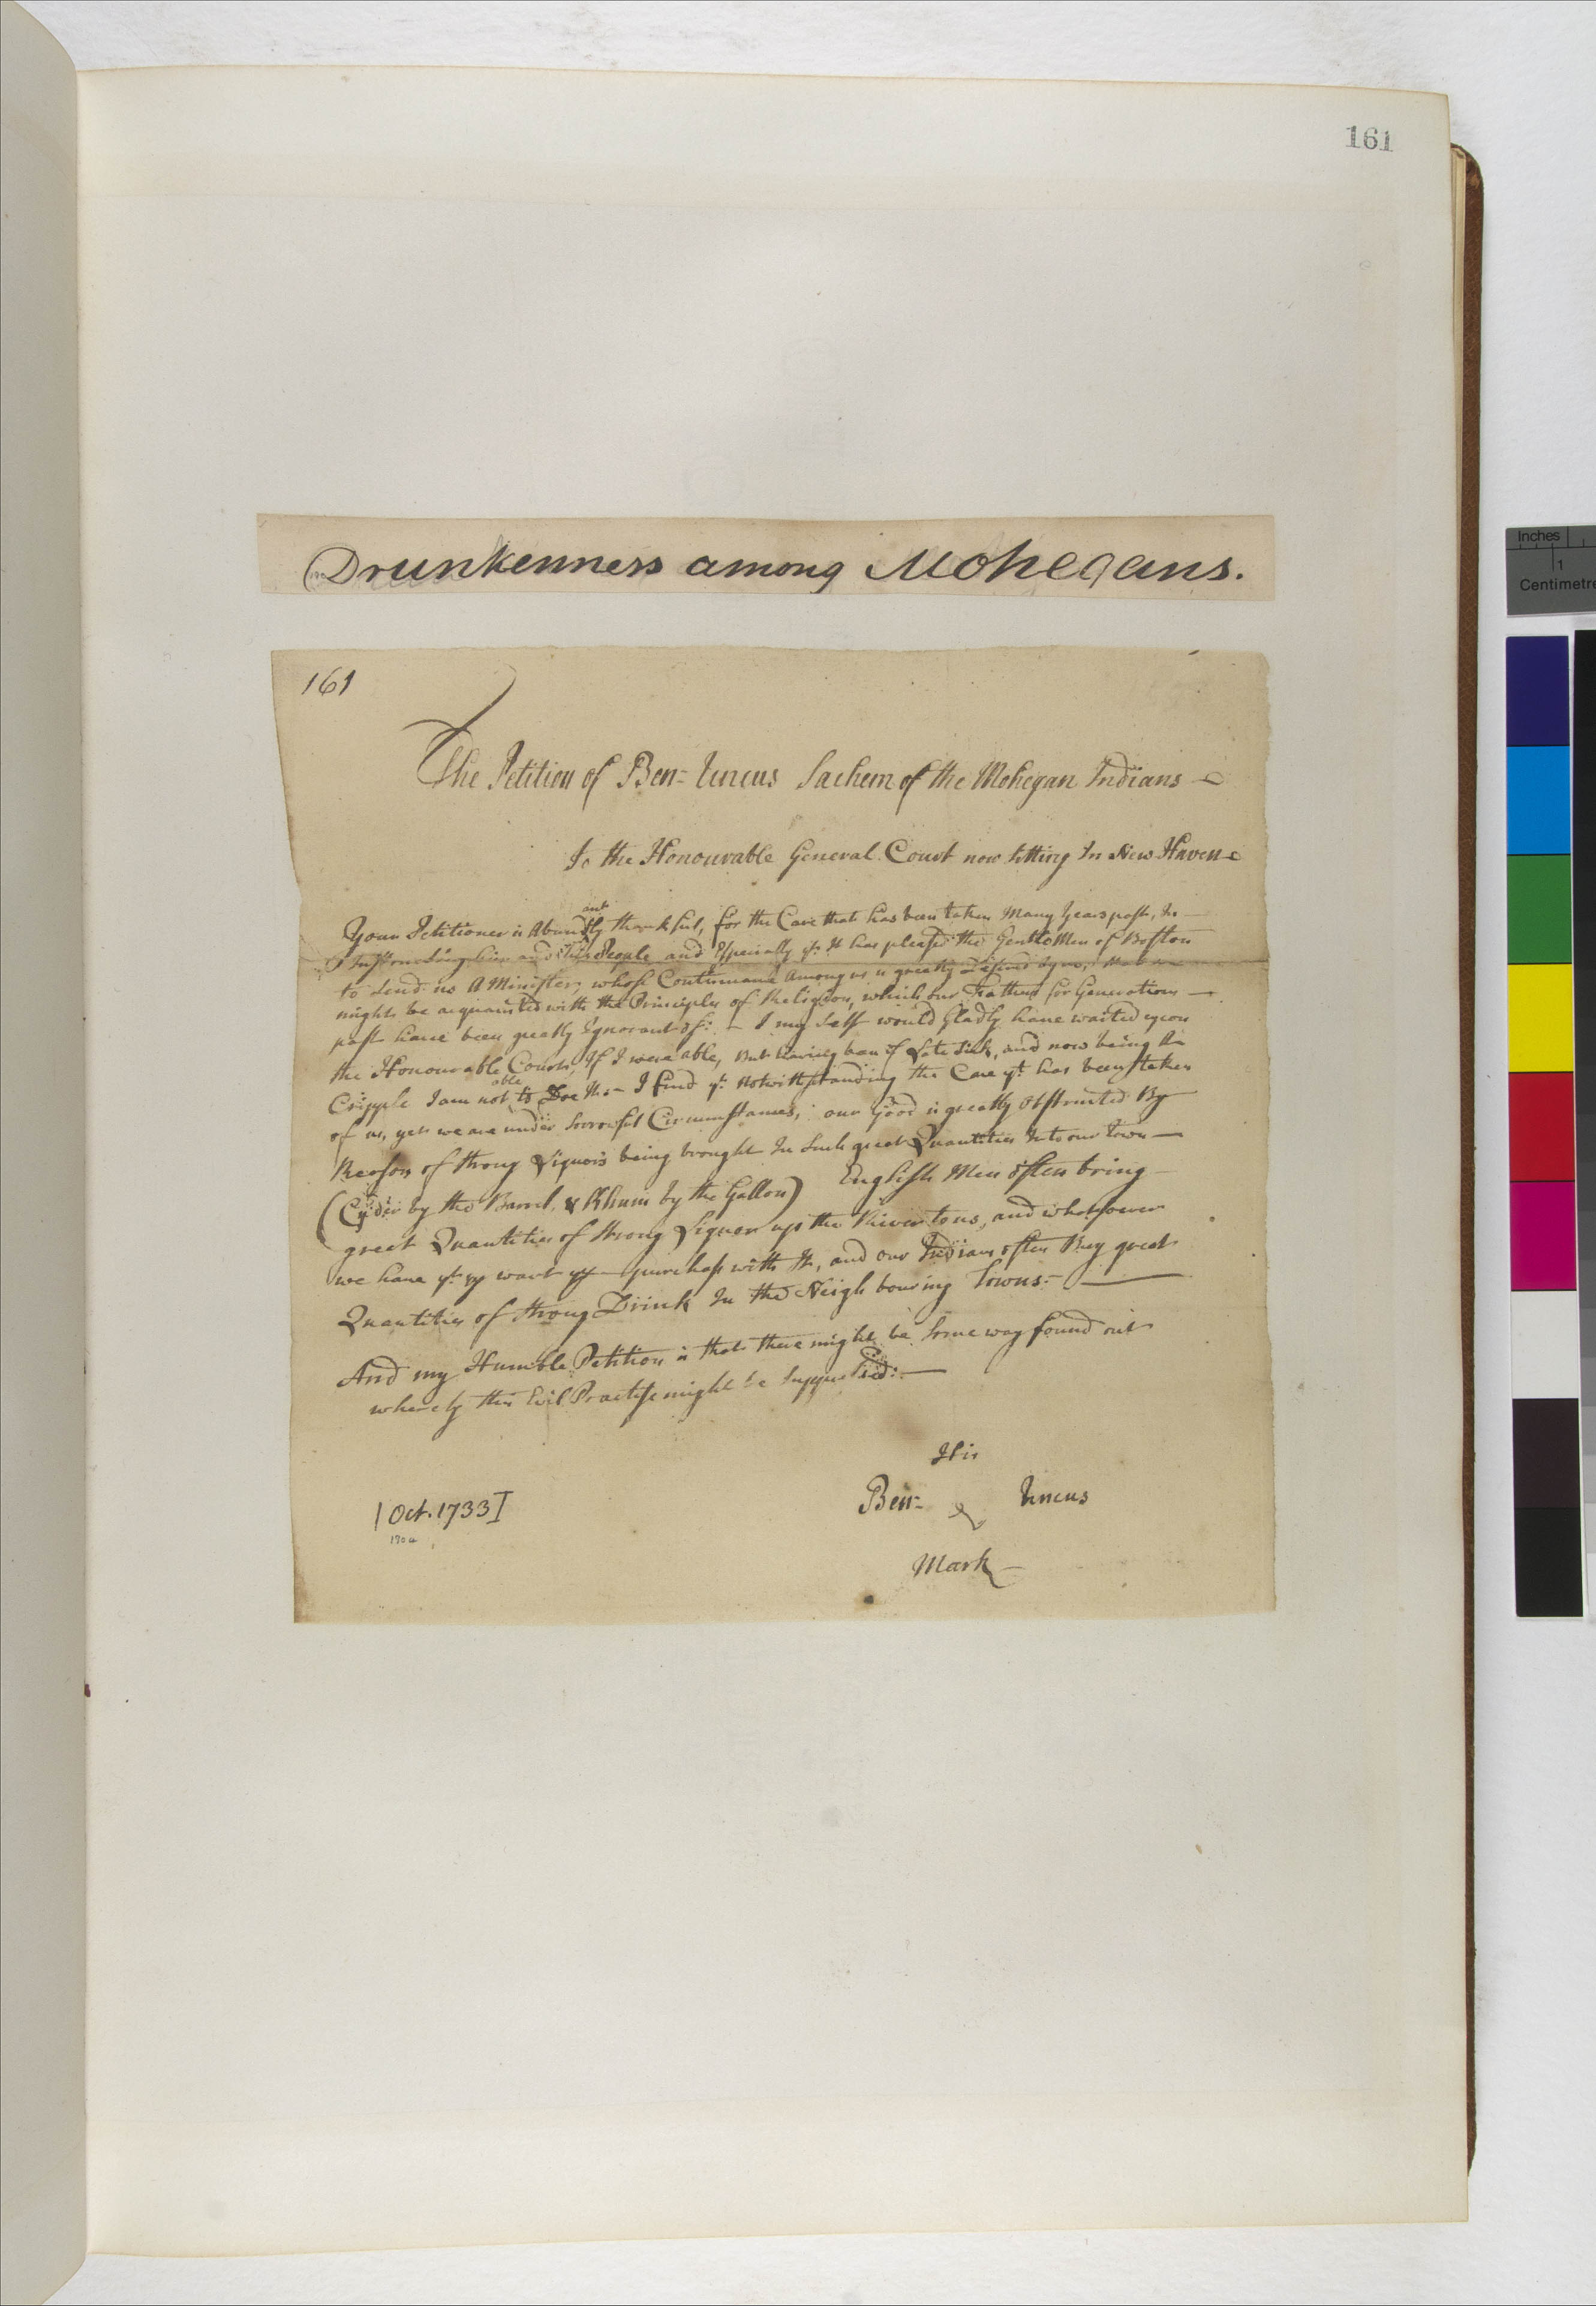 161
Drunkenness among Mohegans.
161
The Petition of Ben= Uncus Sachem of the Mohegan Indians
To the Honourable General Court now sitting In New Haven
ant
Your Petitioner is Abundly thankful, for the Care that has been taken Many Years past, In
Instructing him and his People and Especially yt. It has pleased the Gentle Men of Boston
to Send us A Minister, whose Continuance Among us is greatly Desired by us, that we
might be acquainted with the Principles of Religion, which our Fathers for Generations
past have been greatly Ignorant of: - I my Self would Gladly have waited upon
the Honourable Court, If I were able, But having been of Late Sick, and now being A
able
Cripple I am not to Doe It. - I find yt. Notwithstanding the Care yt. has been taken
of us, yet we are under Sorrowful Circumstances, our Good is greatly Obstructed By
Reason of Strong Liquors being brought In Such great Quantities Into our Town
(Cyder by the Barrel, & Rhum by the Gallon) English Men often bring
great Quantities of Strong Liquor up the River to us, and whatsoever
we have yt. yy want yy purchase with It, and our Indians often Buy great
Quantities of Strong Drink In the Neighbouring Towns. -
And my Humble Petition is that there might be Some way found out
whereby this Evil Practise might be Suppressed: -
His
Ben= Uncus
Mark
[Oct. 1733]
170a
Inches
1
Centimetre